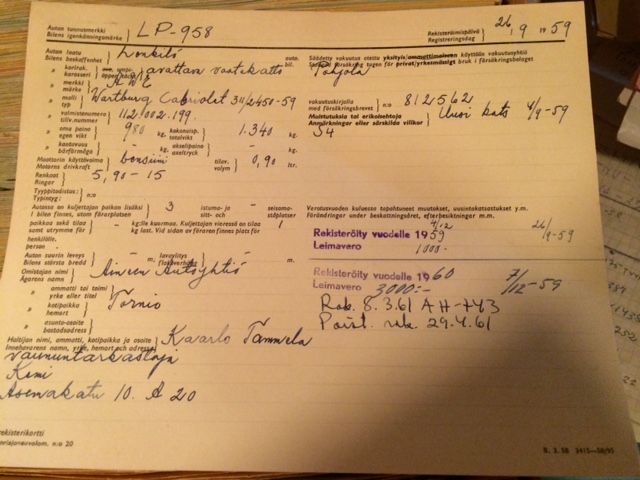 Auton tunnusmerkki
Bilens igenkänningsmärke
LP-958
Rekisteröimispäivä
Registreringsdag
26/9 1959
Auton laatu
Bilens beskaffenhet
henkilö auto.
bil.
Säädetty vakuutus otettu yksityis/ammattimaiseen käyttöön vakuutusyhtiö
försäkringsbolaget
Pohjola
avattan vaatekatto
merkki
märke
A W E
malli
typ
Wartburg Cabriolet 311/2450-59
vakuutuskirjalla
med försäkringsbrevet
n:o 812562
valmistenumero
tillv.nummer
112.002.199.
Muistutuksia tai erikoisehtoja
Anmärkningar eller särskilda villkor
Uusi kats 4/9-59
S4
oma paino
egen vikt
980 kg.
kokonaisp.
totalvikt
1.340 kg.
kantavuus
bärförmåga
- kg.
akselipaine
axeltryck
- kg.
Moottorin käyttövoima
Motorns drivkraft
bensiini
tilav.
volym
0,90 ltr.
Renkaat
Ringar
5,90-15
Tyyppitodistus:
Typintyg:
n:o
Autossa on kuljettajan paikan lisäksi
I bilen finnes, utom förarplatsen
3
istuma- ja
sitt- och
-
seisoma-
ståplatser
paikkaa sekä tilaa
samt utrymme för
- kg:lle kuormaa. Kuljettajan vieressä on tilaa
kg last. Vid sidan av föraren finnes plats för
1
henkilölle.
person
Verotusvuoden kuluessa tapahtuneet muutokset, uusintakatsastukset y.m.
förändringar under beskattningsåret, efterbesiktningar m.m.
Rekisteröity vuodelle 1959
Leimavero 1000.-
26/9-59
Auton suurin leveys
Bilens största bredd
- m.
lavayllitys
- m.
Omistajan nimi
Ägarens namn
Aineen Autoyhtiö
Rekisteröity vuodelle 1960
Leimavero 3000:-
7/12-59
ammatti tai toimi
yrke eller titel
kotipaikka
hemort
Tornio
Rob. 8.3.61 AH-743
Poist. rek. 29.4.61
asunto-osoite
bostadsadress
Haltijan nimi, ammatti, kotipaikka ja osoite
Innehavarens namn, yrke, hemort och adress
Kaarlo Tammela
vaununtarkastaja
Kemi
Asemakatu 10. A 20
rekisterikortti
n:o 20